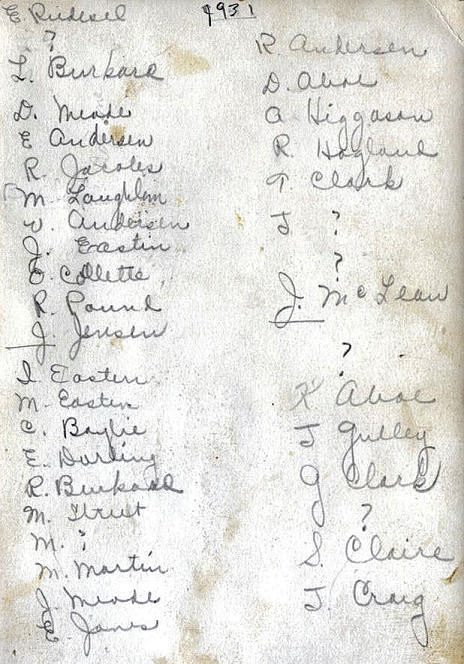 1931
E. Rudesel
?
L. Burkard
D. Meade
E Andersen
R. Jacobs
M. Laughlin
V. Andersen
J. Eastin
E. Collette
R. Pound
J. Jensen
I. Eastern
M. Eastin
C. Baylie
E. Darling
R. Burkard
M.
M. ?
M. Martin
J. Meade
E. Janes
R. Andersen
D. Aboe
A Higgason
R Hogland
T. Clark
J ?
?
J. McLean
?
K Aboe
J Gulley
G Clark
?
S. Claire
J. Craig